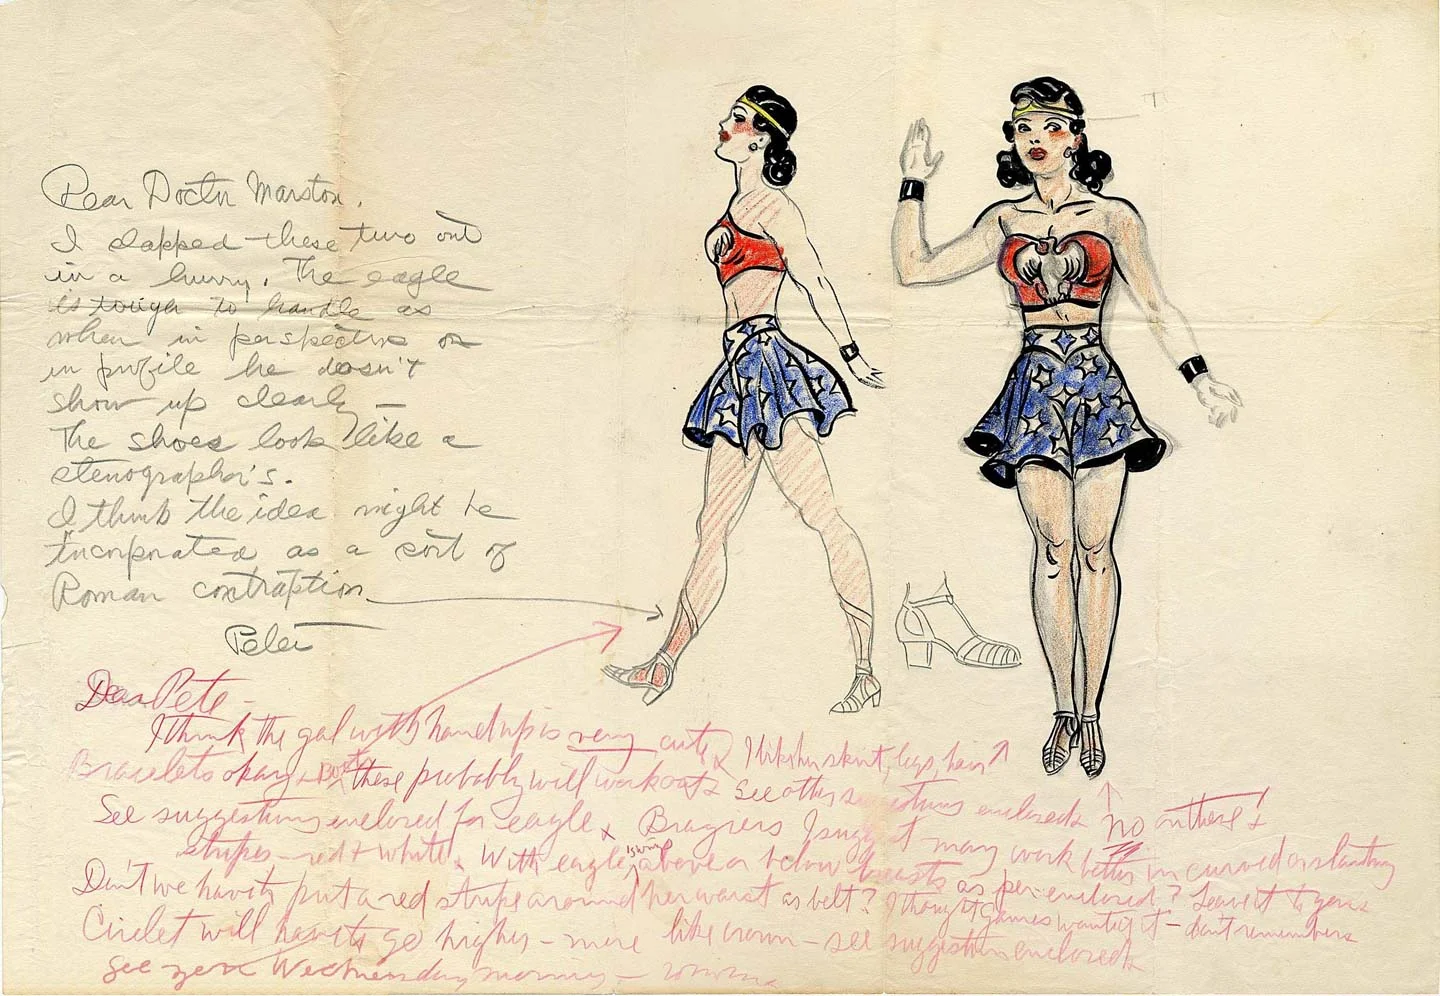 Dear Doctor Marston,
I slapped these two out
in a hurry. The eagle
is tough to handle as
when in perspective or
in profile he doesn't
show up clearly —
The shoes look like a
stenographer's.
I think the idea might be
incorporated as a sort of
Roman contraption.
Peter
Dear Pete —
I think the gal with hand up is very cute. I like her skirt, legs, hair.
Bracelets okay + boots these probably will work out. See other suggestions enclosed. No on these!
See suggestions enclosed for eagle & Brassiers I suggest may work better in curved or slanting
stripes — red + white. With eagle's wing above or below breasts as per enclosed? Leave it to you.
Don't we have to put a red stripe around her waist as belt? I thought Gaines wanted it — don't remember.
Circlet will have to go higher — more like crown — see suggestion enclosed.
See you Wednesday morning —